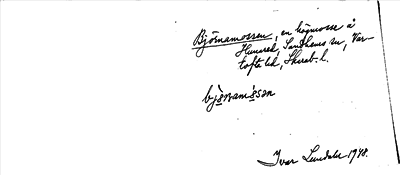 Björnamossen, en högmosse å
Hunsred, Sandhems sn, Var-
tofta hd, Skarab. l.
bjö̱ṇamo̱sən
Ivar Lundahl 1948.